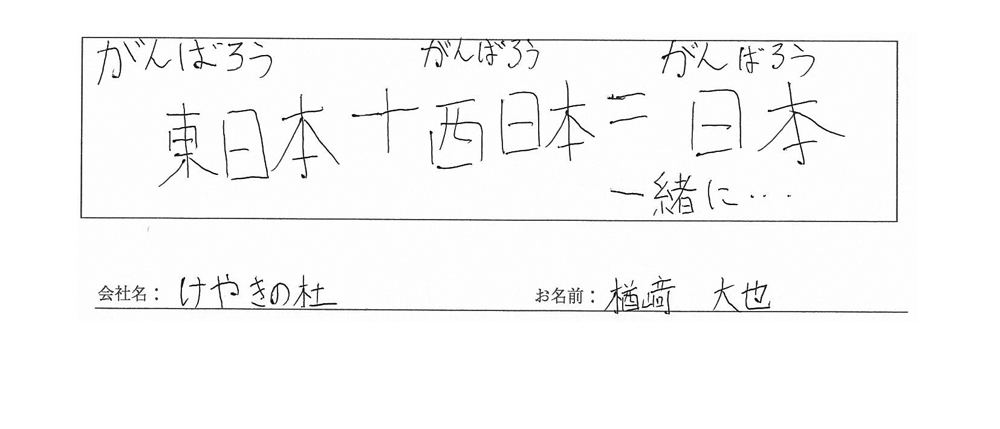 がんばろう がんばろう がんばろう
東日本+西日本=日本
一緒に…
会社名： けやきの杜 お名前： 楢﨑 大也